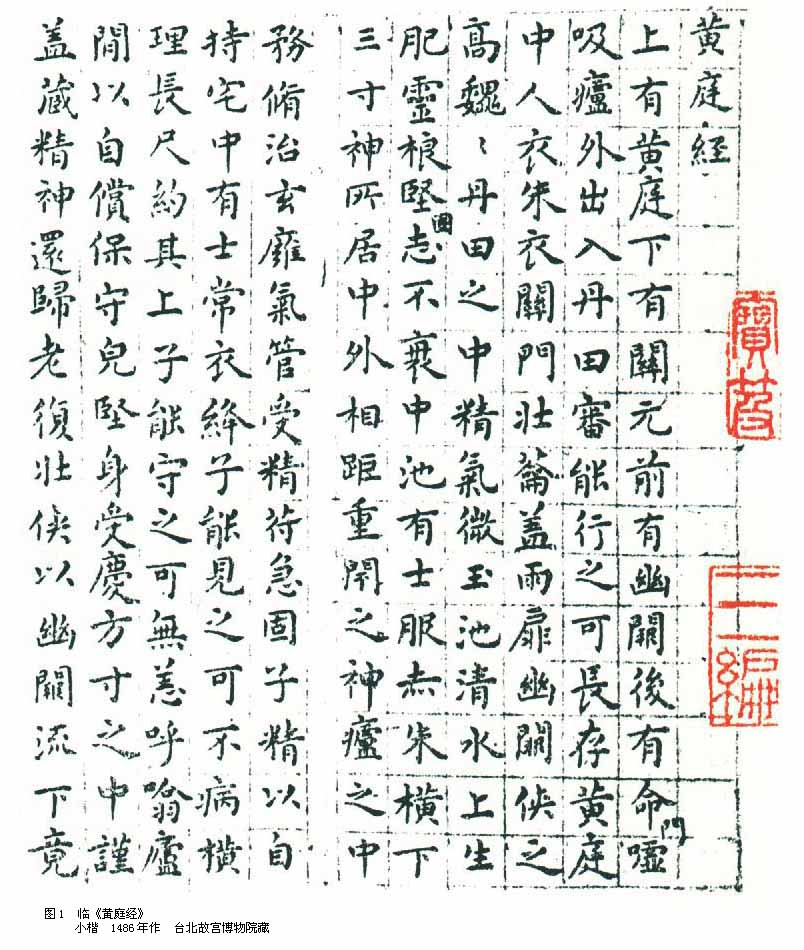 黄庭經
上有黄庭下有關元前有幽闕後有命門嘘
吸廬外出入丹田審能行之可長存黄庭
中人衣朱衣關門壮蘥盖兩扉幽闕俠之
高魏〻丹田之中精氣微玉池清水上生
肥靈根堅志不衰中池有士服赤朱横下
三寸神所居中外相距重閇之神廬之中
務脩治玄廱氣管受精符急固子精以自
持宅中有士常衣絳子能見之可不病横
理長尺約其上子能守之可無恙呼噏廬
間以自償保守皃堅身受慶方寸之中謹
盖藏精神還歸老復壮俠以幽闕流下竟
寶笈
三編
图1 临《黄庭经》
小楷 1486年作 台北故宫博物院藏